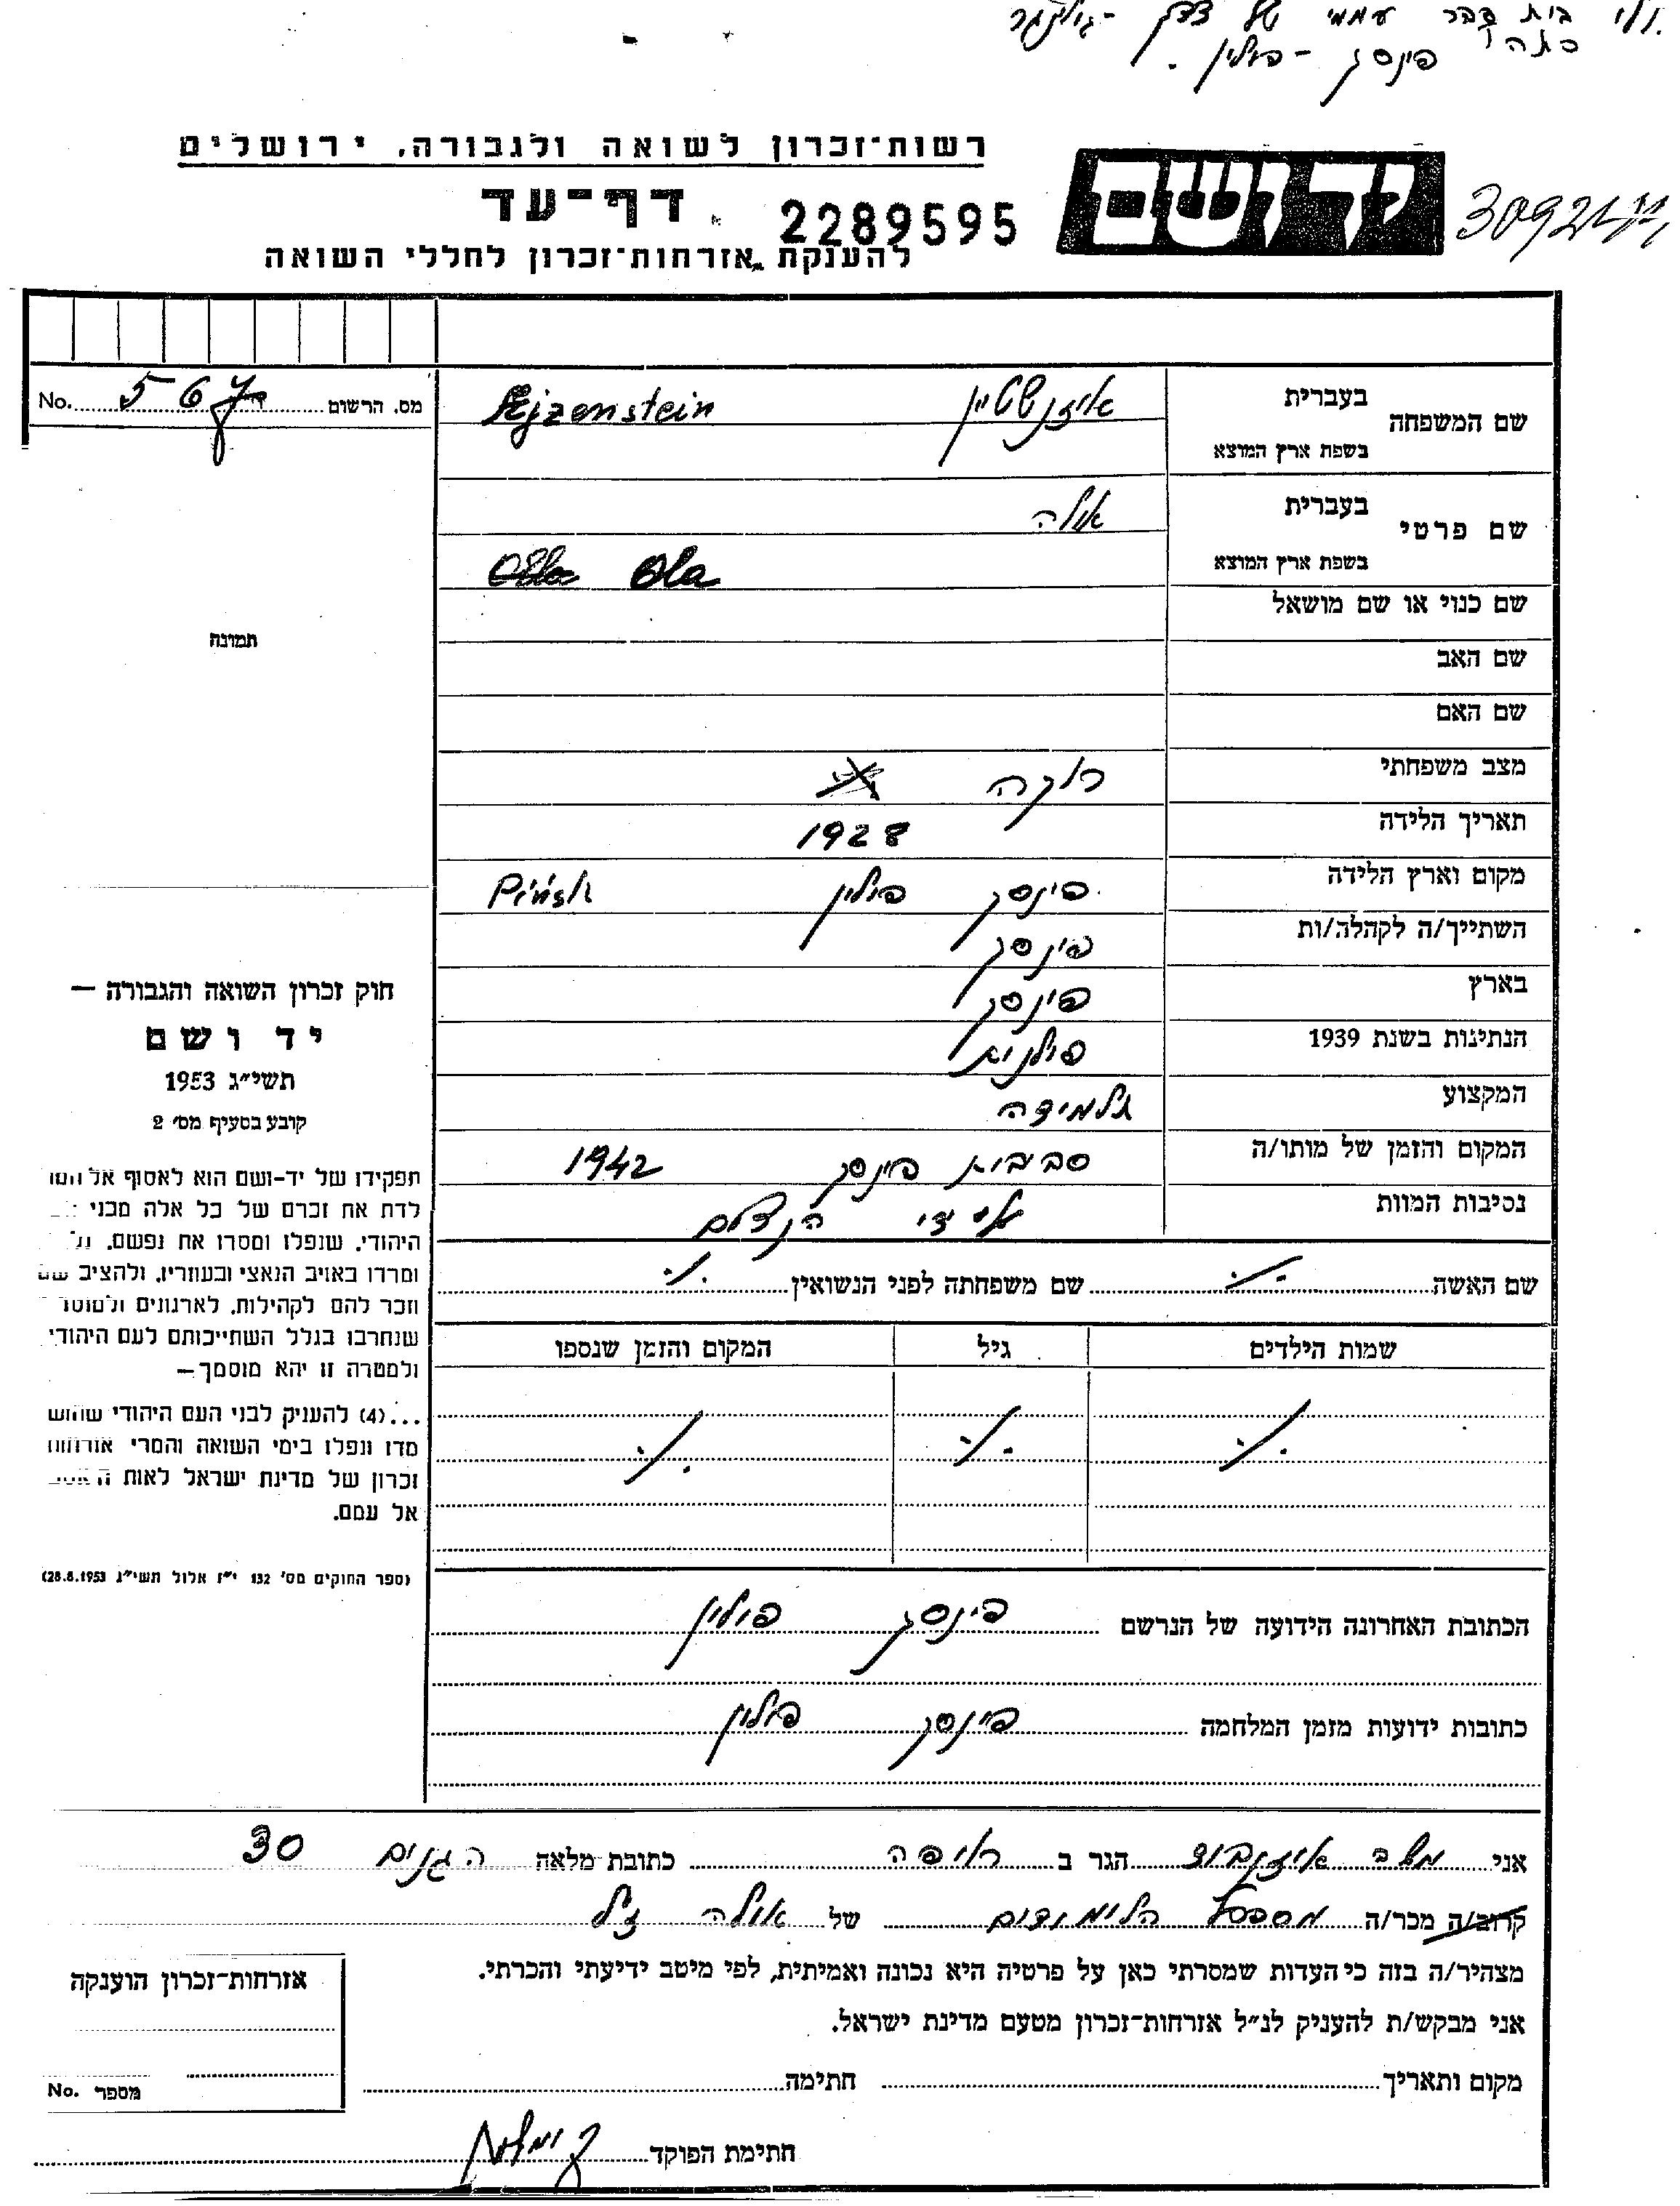 בית ספר עממי של צדק - גליקמן
כתה ו
פינסק - פולין.
רשות־זכרון לשואה ולגבורה, ירושלים
יד ושם
דף־עד
2289595
להענקת אזרחות־זכרון לחללי השואה
מס. הרשום 567 No.
שם המשפחה
בעברית איזנשטיין Ejzenstein
בשפת ארץ המוצא
שם פרטי
בעברית אולה
בשפת ארץ המוצא Ola
שם כנוי או שם מושאל
שם האב
שם האם
מצב משפחתי רוקה
תאריך הלידה 1928
מקום וארץ הלידה פינסק פולין Pińsk
השתייך/ה לקהלה/ות פינסק
בארץ פינסק
הנתינות בשנת 1939 פולנית
המקצוע תלמידה
המקום והזמן של מותו/ה סביבות פינסק 1942
נסיבות המוות ע"י הנאצים
תמונה
חוק זכרון השואה והגבורה —
יד ושם
תשי״ג 1953
קובע בסעיף מס׳ 2
תפקידו של יד-ושם הוא לאסוף אל
לדת את זכרם של כל אלה מבני
היהודי, שנפלו ומסרו את נפשם,
ומרדו באויב הנאצי ובעוזריו, ולהציב שם
וזכר להם לקהילות, לארגונים ולמוסד
שנחרבו בגלל השתייכותם לעם היהודי
ולמטרה זו יהא מוסמך—
...(4) להעניק לבני העם היהודי שהוש
מדו ונפלו בימי השואה והמרי אזרחות
זכרון של מדינת ישראל לאות
אל עמם.
(ספר החוקים מס׳ 132 י״ז אלול תשי״ג 28.8.1953)
שם האשה ./. שם משפחתה לפני הנשואין ./.
שמות הילדים גיל המקום והזמן שנספו
./. ./. ./.
הכתובת האחרונה הידועה של הנרשם פינסק פולין
כתובות ידועות מזמן המלחמה פינסק פולין
אני איזנבוד הגר ב חיפה כתובת מלאה הגנים 30
קרוב/ה מכר/ה מספסל הלימודים של אולה ז"ל
מצהיר/ה בזה כי העדות שמסרתי כאן על פרטיה היא נכונה ואמיתית, לפי מיטב ידיעתי והכרתי.
אני מבקש/ת להעניק לנ״ל אזרחות־זכרון מטעם מדינת ישראל.
מקום ותאריך חתימה
חתימת הפוקד
אזרחות־זכרון הוענקה
מספר No.